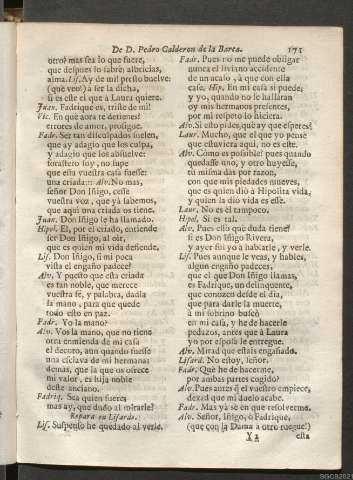 De D. Pedro Calderon de la Barca. 175
otro? mas sea lo que fuere,
que despues lo sabrè; albricias,
alma. Lis. Ay de mil presto buelve:
(què veo!) à ser la dicha,
si es este el que à Laura quiere.
Juan. Fadrique es, triste de mi!
Vic. En què aora te detienes?
errores de amor, prosigue.
Fadr. Ser tan disculpados suelen,
que ay adagio que los culpa,
y adagio que los absuelve:
forastero soy, no supe
que esta vuestra casa fuesse:
una criada:::- Alv. No mas,
señor Don Iñigo, cesse
vuestra voz, que yà sabemos,
que aqui una criada os tiene.
Juan. Don Iñigo le ha llamado.
Hipol. El, por el criado, entiende
ser Don Iñigo, al oìr,
que es quien mi vida defiende.
Lis. Don Iñigo, si mi poca
vista el engaño padece?
Alv. Y puesto que esta criada
es tan noble, que merece
vuestra fè, y palabra, dadla
la mano, para que quede
todo esto en paz.
Fadr. Yo la mano?
Alv. Vos la mano, que no tiene
otra enmienda de mi casa
el decoro, aun quando fuesse
una esclava de mi hermana:
demàs, que la que os ofrece
mi valor, es hija noble
deste anciano.
Fadriq. Sea quien fuere;
mas ay, que dudo al mirarle!
Repara en Lisardo.
Lis. Suspenso he quedado al verle.
Fadr. Pues no me puede obligar
nunca el liviano accidente
de un acaso, à que con ella
case. Hip. En mi casa si puede;
y yo, quando no se hallàran
oy mis hermanos presentes,
por mi respeto lo hiciera.
Alv. Si esto pides, què ay que esperes?
Laur. Mucho, que el que yo pensè
que estuviera aqui, no es este.
Alv. Còmo es possible? pues quando
quedasse uno, y otro huyesse,
tù misma dàs por razon,
con que mis piedades mueves,
que es quien diò à Hipolita vida,
y quien la diò vida es esse.
Laur. No es èl tampoco.
Hipol. Si es tal.
Alv. Pues esso què duda tiene?
si es Don Iñigo Rivera,
y ayer fui yo à hablarle, y verle.
Lis. Pues aunque le veas, y hables,
algun engaño padeces,
que el que Don Iñigo llamas,
es Fadrique, un delinquente,
que conozco desde el dia,
que para darle la muerte,
à mi sobrino buscò
en mi casa, y he de hacerle
pedazos, antes que à Laura
yo por esposa le entregue.
Alv. Mirad que estais engañado.
Lisard. No estoy, señor.
Fadr. Què he de hacerme,
por ambas partes cogido?
Alv. Pues antes que el vuestro empiece,
dexad que mi duelo acabe.
Fadr. Mas yà sè en que resolverme.
Alv. Señor, Iñigo, ò Fadrique,
(que con la Dama à otro ruegue!)
Y2 esta